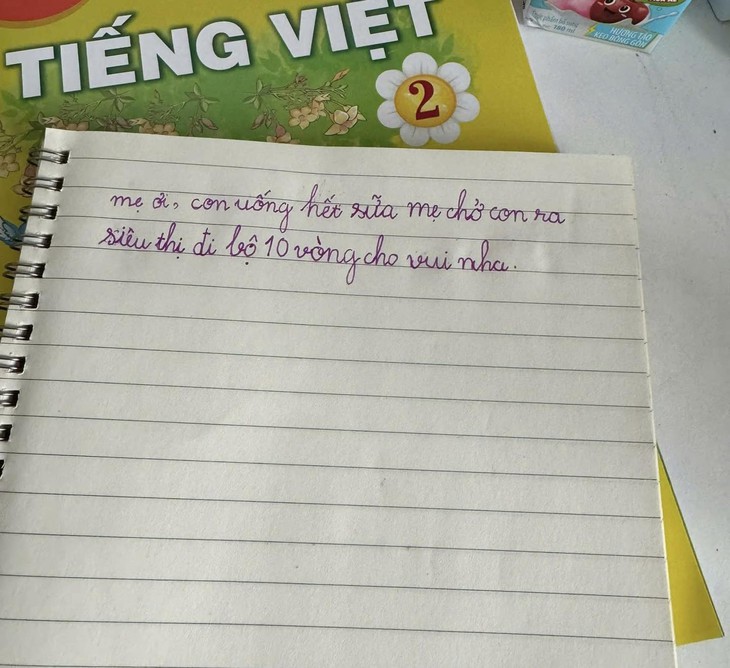 TIẾNG VIỆT
2
HƯƠNG TÁO
KẸO BÔNG GÒN
mẹ ơi, con uống hết sữa mẹ chở con ra
siêu thị đi bộ 10 vòng cho vui nha.